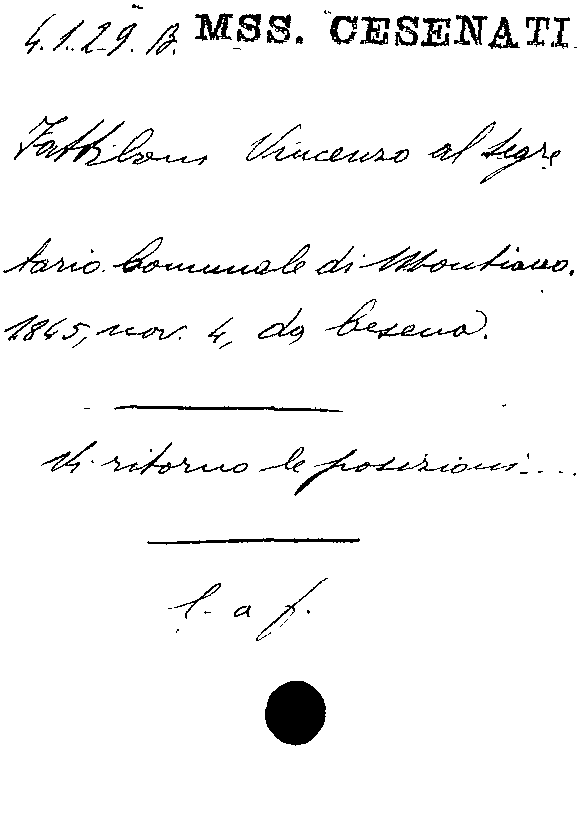 4.1.29.B. MSS. CESENATI
Fattiboni Vincenzo al segre
tario comunale di Montiano.
1865, nov. 4, da Cesena.
Vi ritorno le posizioni....
l. a f.